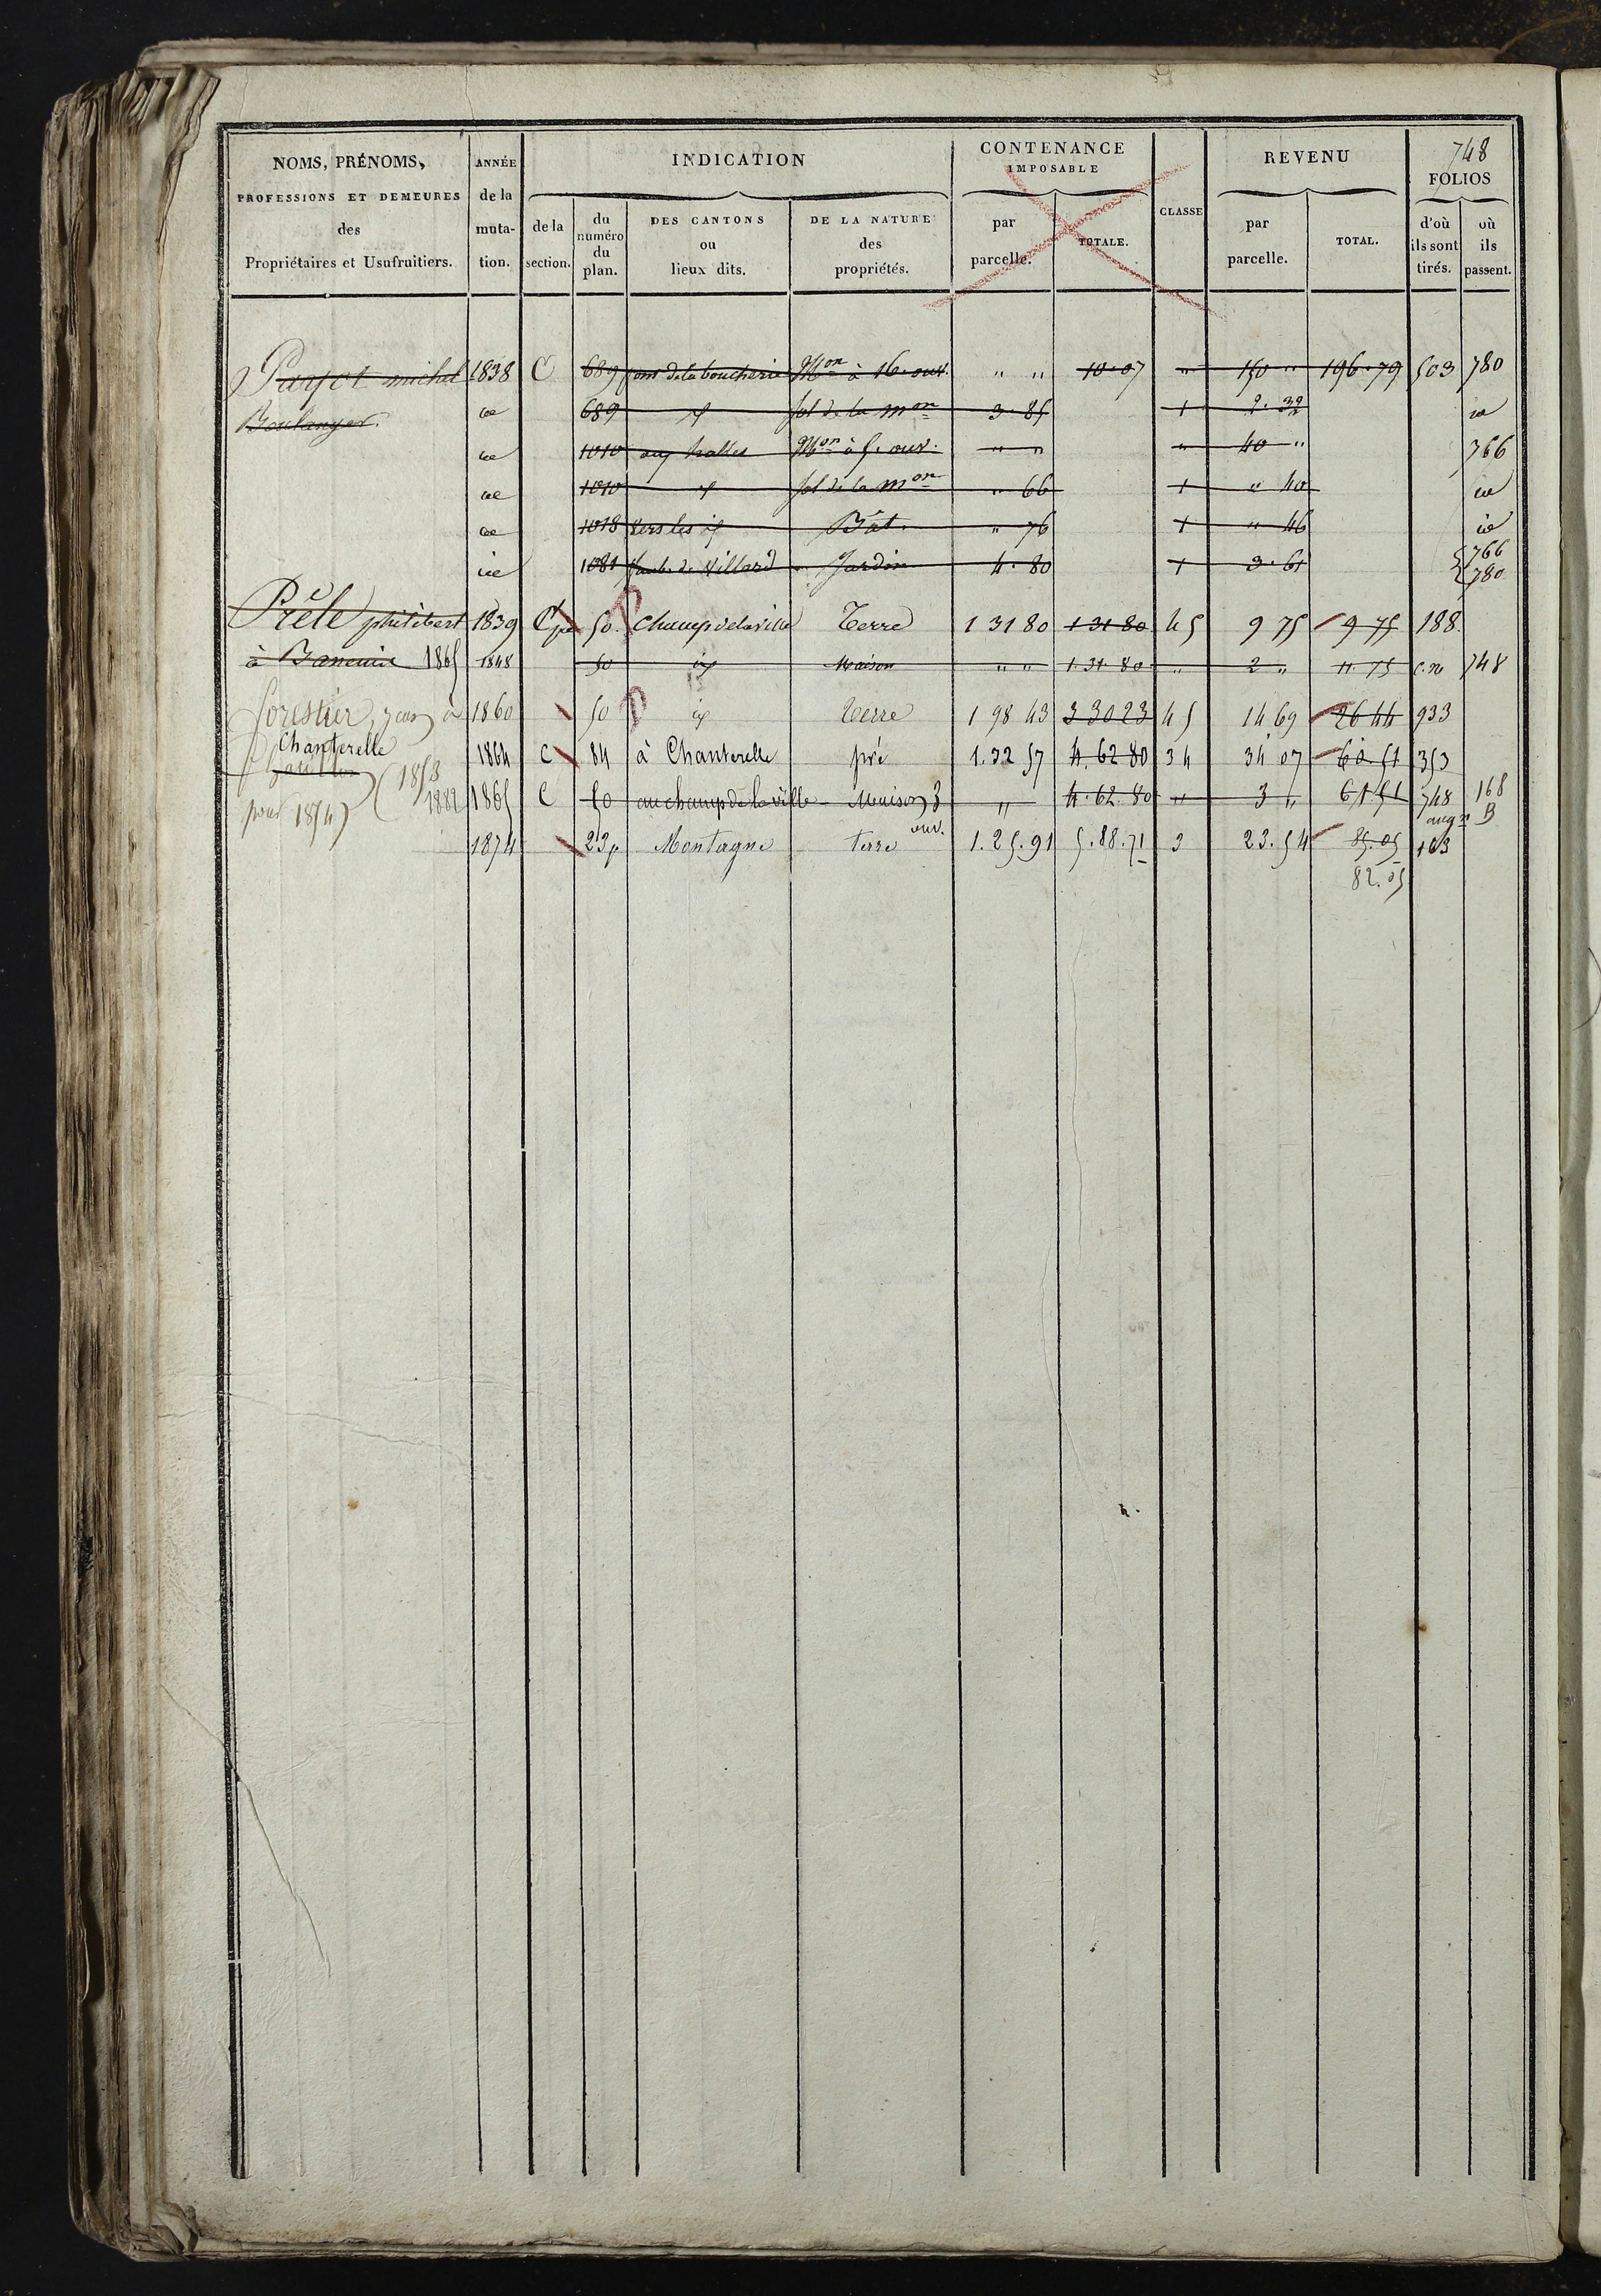 748
NOMS, PRÉNOMS, PROFESSIONS ET DEMEURES des Propriétaires et Usufruitiers.
ANNÉE de la muta- tion.
INDICATION
de la section.
du numéro du plan.
DES CANTONS ou lieux dits.
DE LA NATURE des propriétés.
CONTENANCE IMPOSABLE
par parcelle.
TOTALE.
CLASSE
REVENU
par parcelle.
TOTAL.
FOLIOS
d'où ils sont tirés.
où ils passent.
michel 1838 C 689 de la boucherie Mon à 16. ouv. " " 10.07 " 150 " 196.79 503 780
Boulanger. 689 sol de la mon 3.85 1 2.32
1010 aux halles Mon à 5. ouv. " " " 40 " 766
1010 sol de la mon " 66 1 " 40
1018 vers les Bât. " 76 1 " 46
1081 faub. de Villard Jardin 4.80 1 3.61 766 780
Prêle philibert 1839 C 50. Champ de la ville Terre 1 31 80 1 31 80 45 9 75 9 75 188.
à 1865 1848 50 Maison " " 1.31.80 " 2 " 11.75 748
forestier, à 1860 50 Terre 1 98 43 3 30 23 45 14 69 26 44 933
Chanterelle 1864 C 84 à Chanterelle pré 1.32 57 4.62 80 34 34 07 60.51 353
(1853 1882 1865 C 50 au champ de la ville Maison 3 ouv. " 4.62.80 " 3 " 61.51 748 168
pour 1874) augon B
1874 23p Montagne terre 1.25.91 5.88.71 3 23.54 85.05 103
82.05